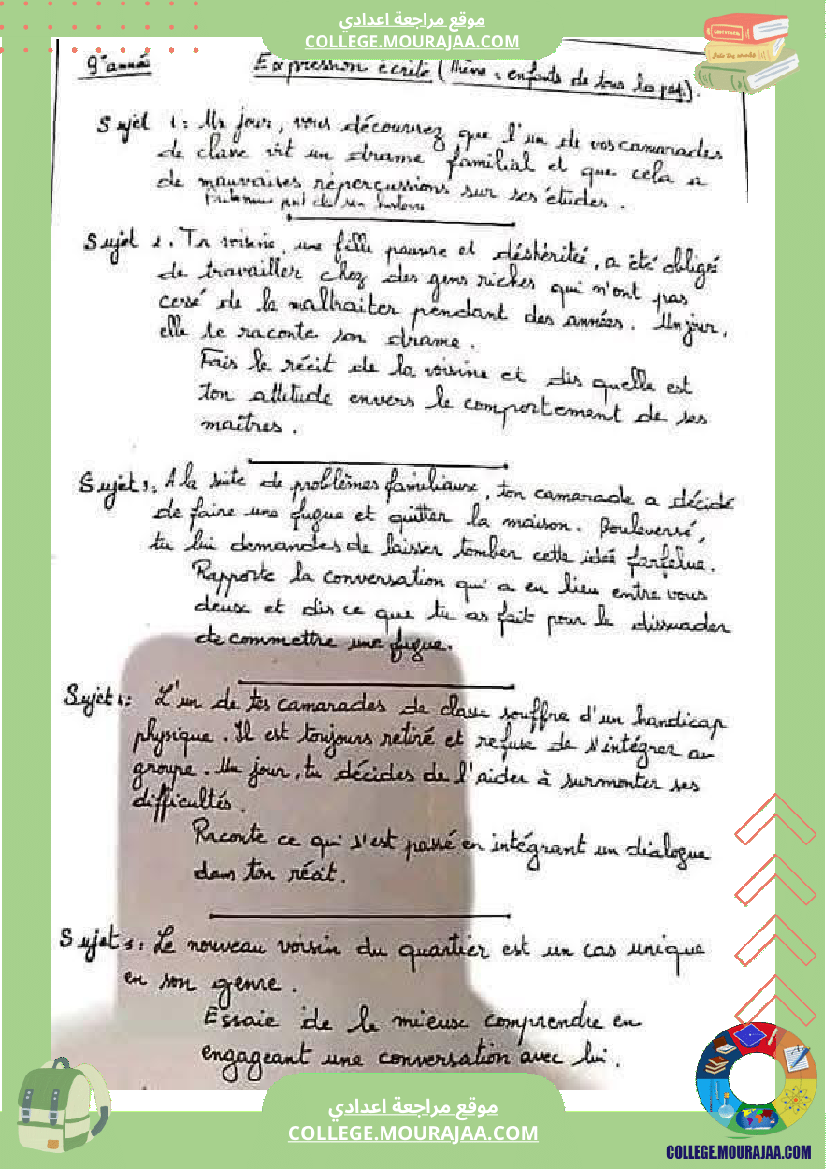 موقع مراجعة اعدادي
COLLEGE.MOURAJAA.COM
9° année
Expression écrite (thème : enfants de tous les pays).
Sujet 1 : Un jour, vous découvrez que l'un de vos camarades
de classe vit un drame familial et que cela a
de mauvaises répercussions sur ses études.
son histoire
Sujet 2. Ta voisine, une fille pauvre et déshéritée, a été obligé
de travailler chez des gens riches qui n'ont pas
cessé de la maltraiter pendant des années. Un jour,
elle te raconte son drame.
Fais le récit de la voisine et dis quelle est
ton attitude envers le comportement de ses
maîtres.
Sujet 3: A la suite de problèmes familiaux, ton camarade a décidé
de faire une fugue et quitter la maison. Bouleversé,
tu lui demandes de laisser tomber cette idée farfelue.
Rapporte la conversation qui a eu lieu entre vous
deux et dis ce que tu as fait pour le dissuader
de commettre une fugue.
Sujet 4: L'un de tes camarades de classe souffre d'un handicap
physique. Il est toujours retiré et refuse de s'intégrer au
groupe. Un jour, tu décides de l'aider à surmonter ses
difficultés.
Raconte ce qui s'est passé en intégrant un dialogue
dans ton récit.
Sujet 5: Le nouveau voisin du quartier est un cas unique
en son genre.
Essaie de le mieux comprendre en
engageant une conversation avec lui.
موقع مراجعة اعدادي
COLLEGE.MOURAJAA.COM
COLLEGE.MOURAJAA.COM